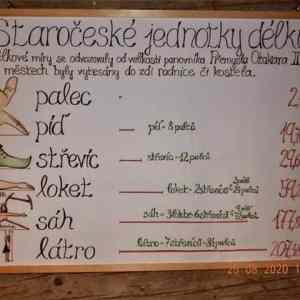 Staročeské jednotky délky
Délkové míry se odvozovaly od velikosti panovníka Přemysla Otakara II.
městech byly vytesány do zdí radnice či kostela.
palec 2,
píď píď - 8 palců 19,
střevíc střevíc - 12 palců 29,
loket loket - 2 střevíce
sáh sáh - 3 lokte 6 střevíců 177,
látro látro - 7 střevíců - 84 palců 207,